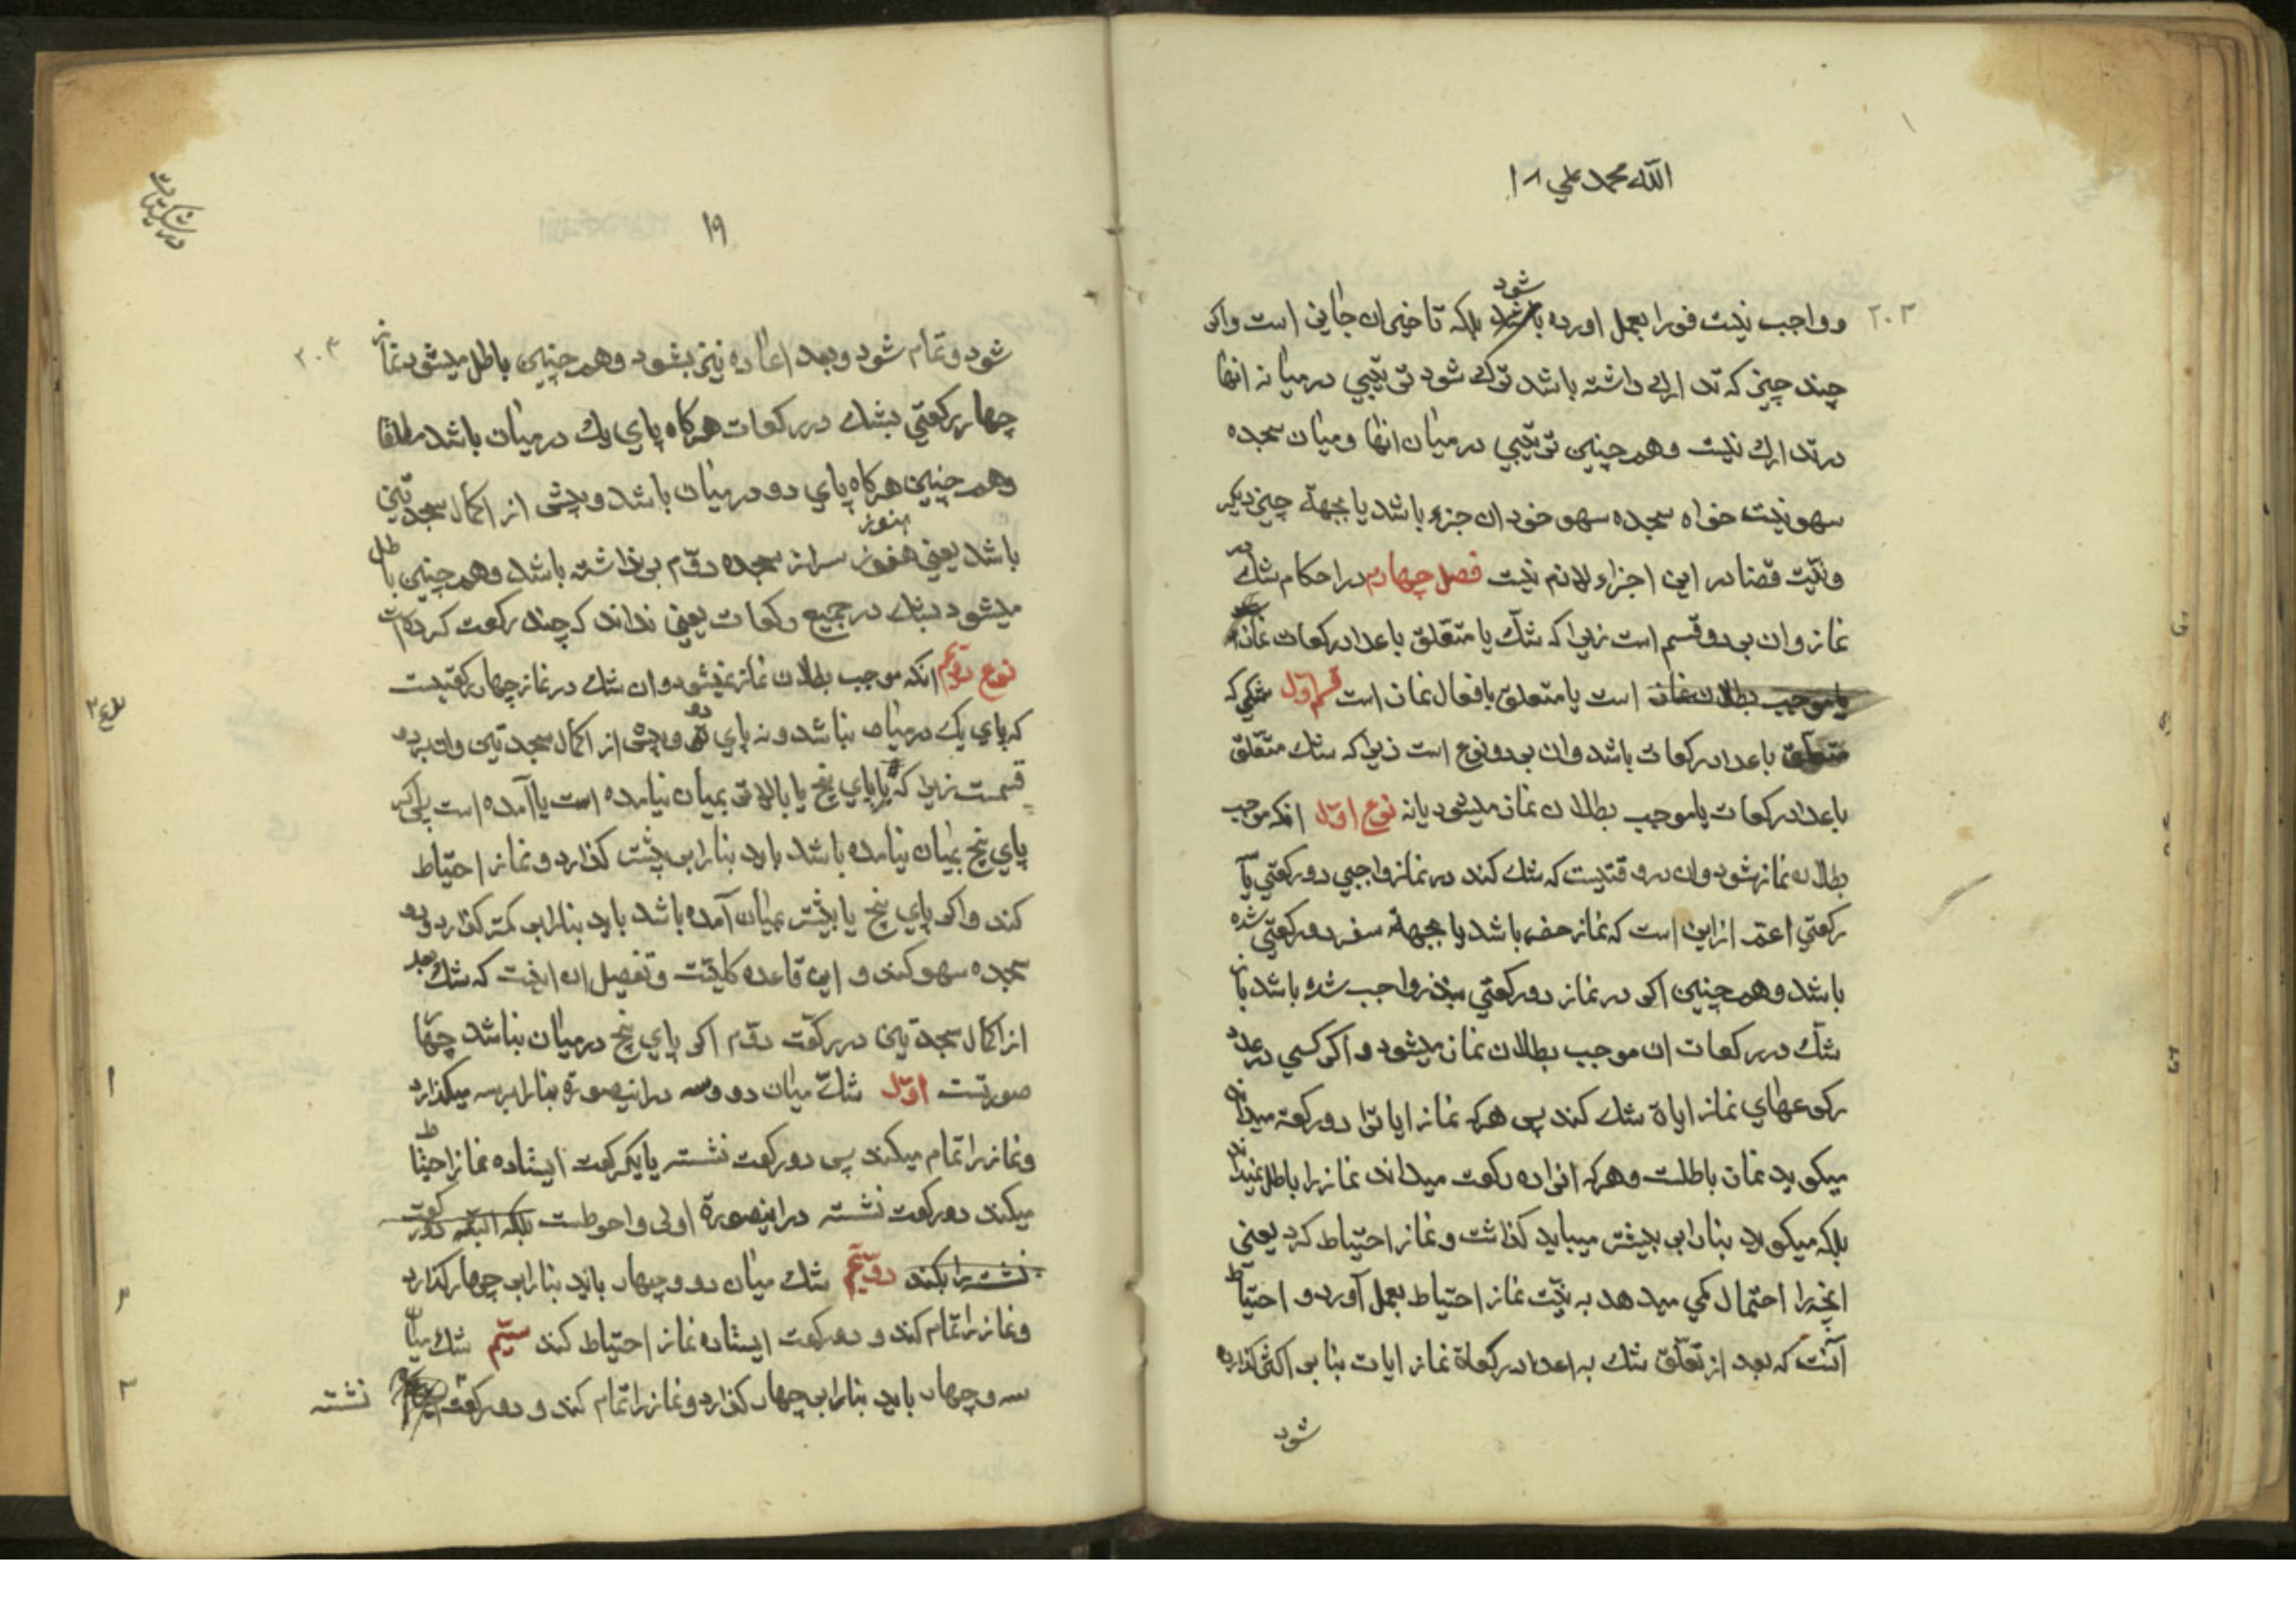 الله محمد علي ۱۸
۲۰۳
شود
و واجب نیست فورا بعمل اورده باشد بلکه تاخیران جایز است واکر
چند چیز که تدارک داشته باشد ترک شود ترتیبی درمیانه انها
در تدارک نیست وهم چنین ترتیبی درمیان انها ومیان سجده
سهو نیست خواه سجده سهو خود ان جزء باشد یا بجهة چیز دیکر
ونیّت قضا در این اجزاء لازم نیست فصل چهارم در احکام شك در
نماز وان بر دو قسم است زیرا که شكّ یا متعّلق باعداد رکعات نماز
یا موجب بطلان نماز است یا متعلق بافعال نماز است قسم اوّل شکی که
متعلق باعداد رکعات باشد وان بر دو نوع است زیرا که شك متعّلق
باعداد رکعات یا موجب بطلان نماز میشود یا نه نوع اوّل انکه موجب
بطلان نماز شود وان در وقتیست که شك کند در نماز واجبی دو رکعتی یا
رکعتی اعم از این است که نماز حضر باشد یا بجهة سفر دو رکعتی شده
باشد وهم چنین اکر در نماز دو رکعتی بنذر واجب شده باشد باز
شك در رکعات ان موجب بطلان نماز میشود و اکر کسی در عدد
رکوعهای نماز ایاة شك کند پس هر که نماز ایات را دو رکعة میداند
میکوید نماز باطلست وهر که انرا ده رکعت میداند نماز را باطل نمیداند
بلکه میکوید بنا را بر بیشتر میباید کذاشت ونماز احتیاط کرد یعنی
انچه را احتمال کمی میدهد به نیّت نماز احتیاط بعمل آورد و احتیاط
آنست که بعد از تعلّق شك به اعداد رکعاة نماز ایات بنا بر اکثر کذارده
شود
در شکیات
۱۹
۲۰۴
شود و تمام شود وبعد اعاده نیز بشود وهم چنین باطل میشود نماز
چهار رکعتی بشك در رکعات هرکاه پای یك درمیان باشد مطلقا
وهم چنین هرکاه پای دو درمیان باشد وپیش از اکمال سجدتین
هنوز
باشد یعنی هنوز سر از سجده دوّم بر نداشته باشد وهم چنین باطل
میشود بشك در جمیع رکعات یعنی نداند که چند رکعت کرده است
نوع دوّیم انکه موجب بطلان نماز نمیشود وان شك در نماز چهار رکعتیست
که پای یك درمیان نباشد ونه پای دو وپیش از اکمال سجدتین وان بر دو
قسمست زیرا که یا پای پنج یا بالاتر بمیان نیامده است یا آمده است پس اکر
پای پنج بمیان نیامده باشد باید بنا را بر بیشتر کذارد ونماز احتیاط
کند واکر پای پنج یا بیشتر بمیان آمده باشد باید بنا را بر کمتر کذارد و دو
سجده سهو کند و این قاعده کلیّت وتفصیل ان اینست که شك بعد
از اکمال سجدتین در رکعت دوّم اکر پای پنج درمیان نباشد چهار
صورتست اوّل شك میان دو وسه در اینصورة بنا را بر سه میکذارد
ونماز را تمام میکند پس دو رکعت نشسته یا یکرکعت ایستاده نماز احتیاط
میکند دو رکعت نشسته در اینصورة اولی واحوطست بلکه البته دو رکعت
نشسته را بکند دوّیم شك میان دو وچهار باید بنا را بر چهار کذارد
ونماز را تمام کند و دو رکعت ایستاده نماز احتیاط کند سیّم شك میان
سه وچهار باید بنا را بر چهار کذارد ونماز را تمام کند و دو رکعت نشسته
۱
۲
۳